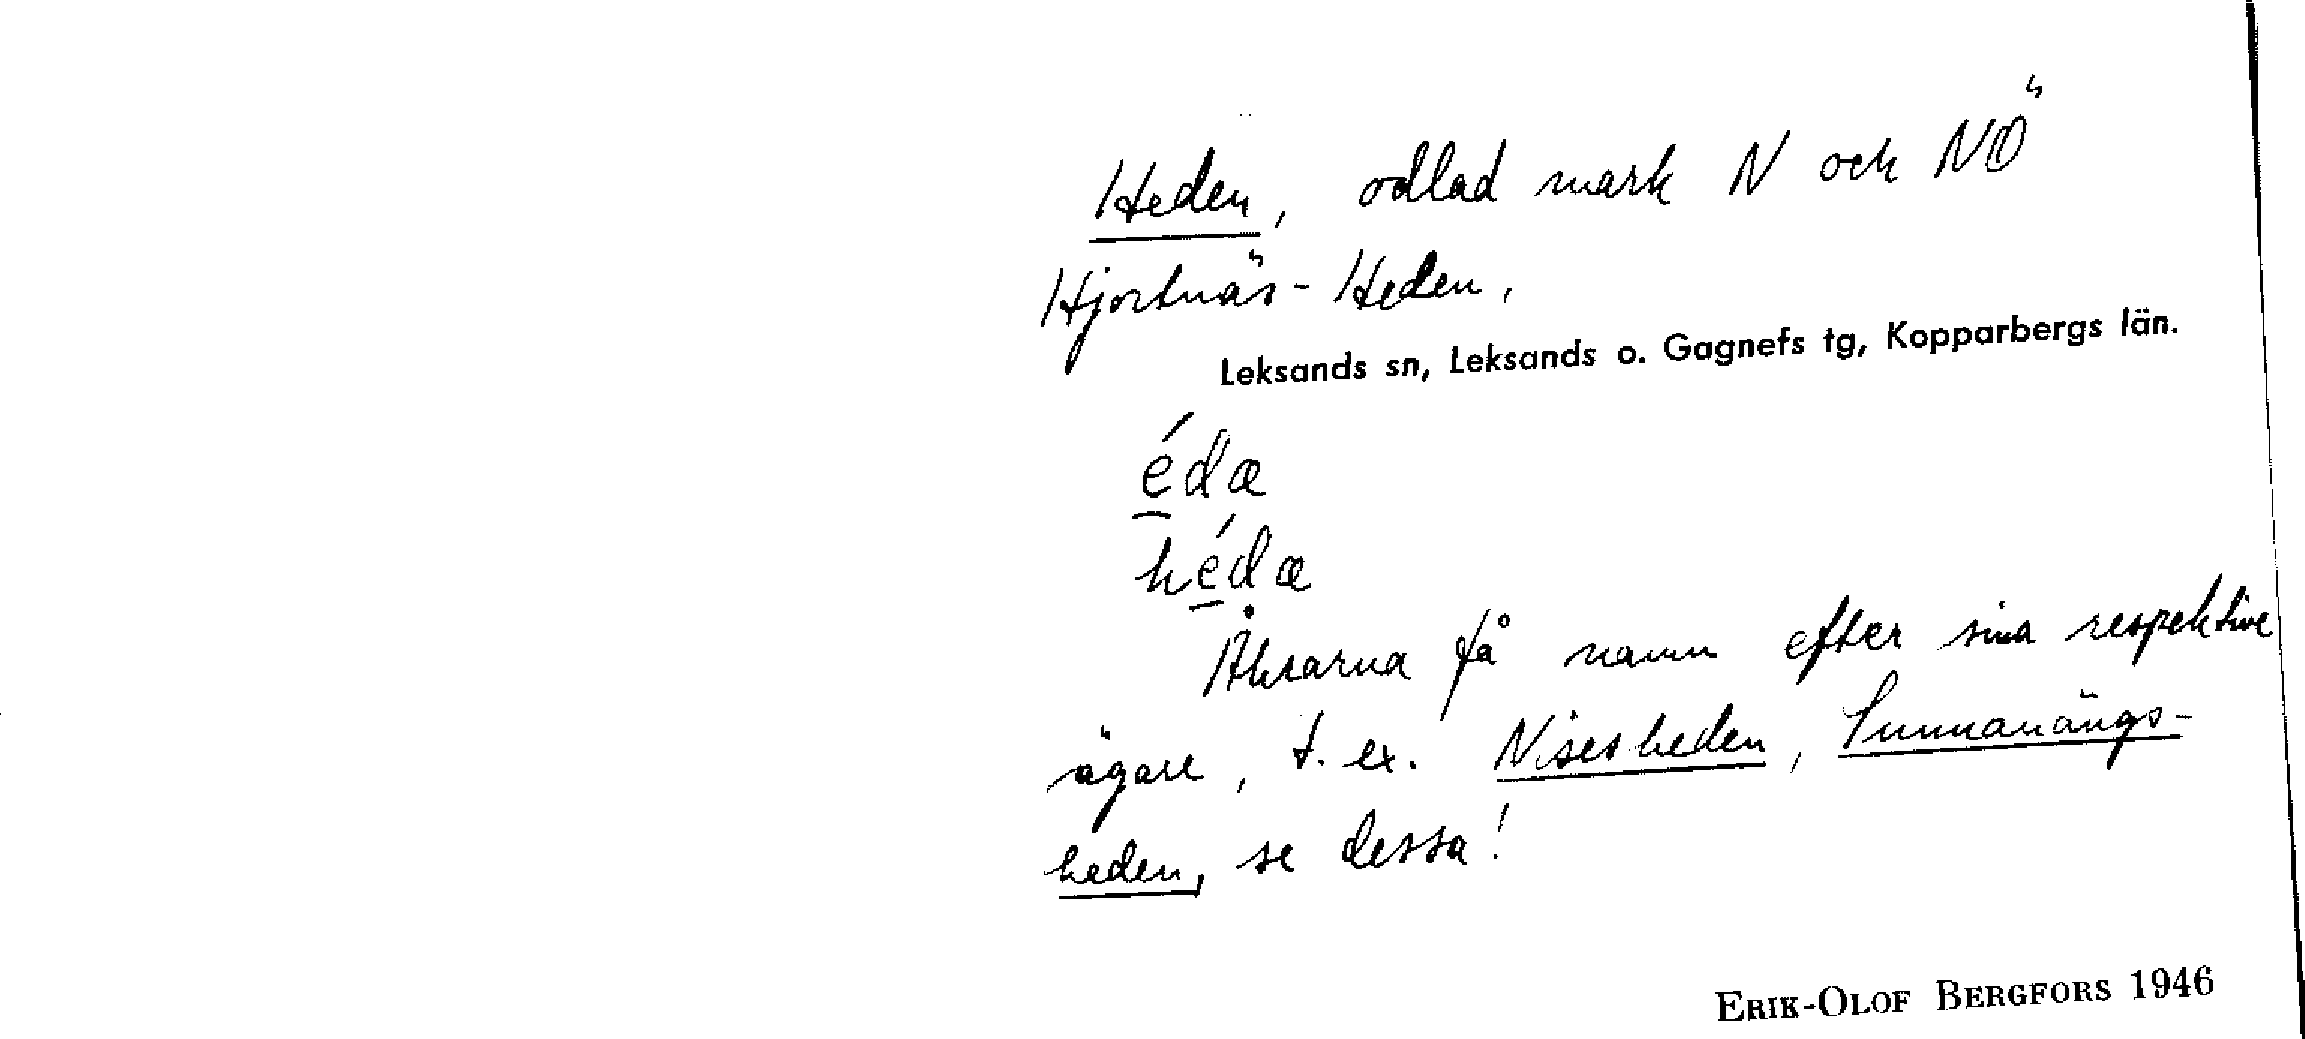 Heden, odlad mark N och NÖ
Hjortnäs-Heden.
Leksands sn, Leksands o. Gagnefs tg, Kopparbergs län.
é̱dæ
hé̱dæ
Åkrarna få namn efter sina respektive
ägare, t. ex. Nisesheden, Sunnanängs-
heden, se dessa!
ERIK-OLOF BERGFORS 1946